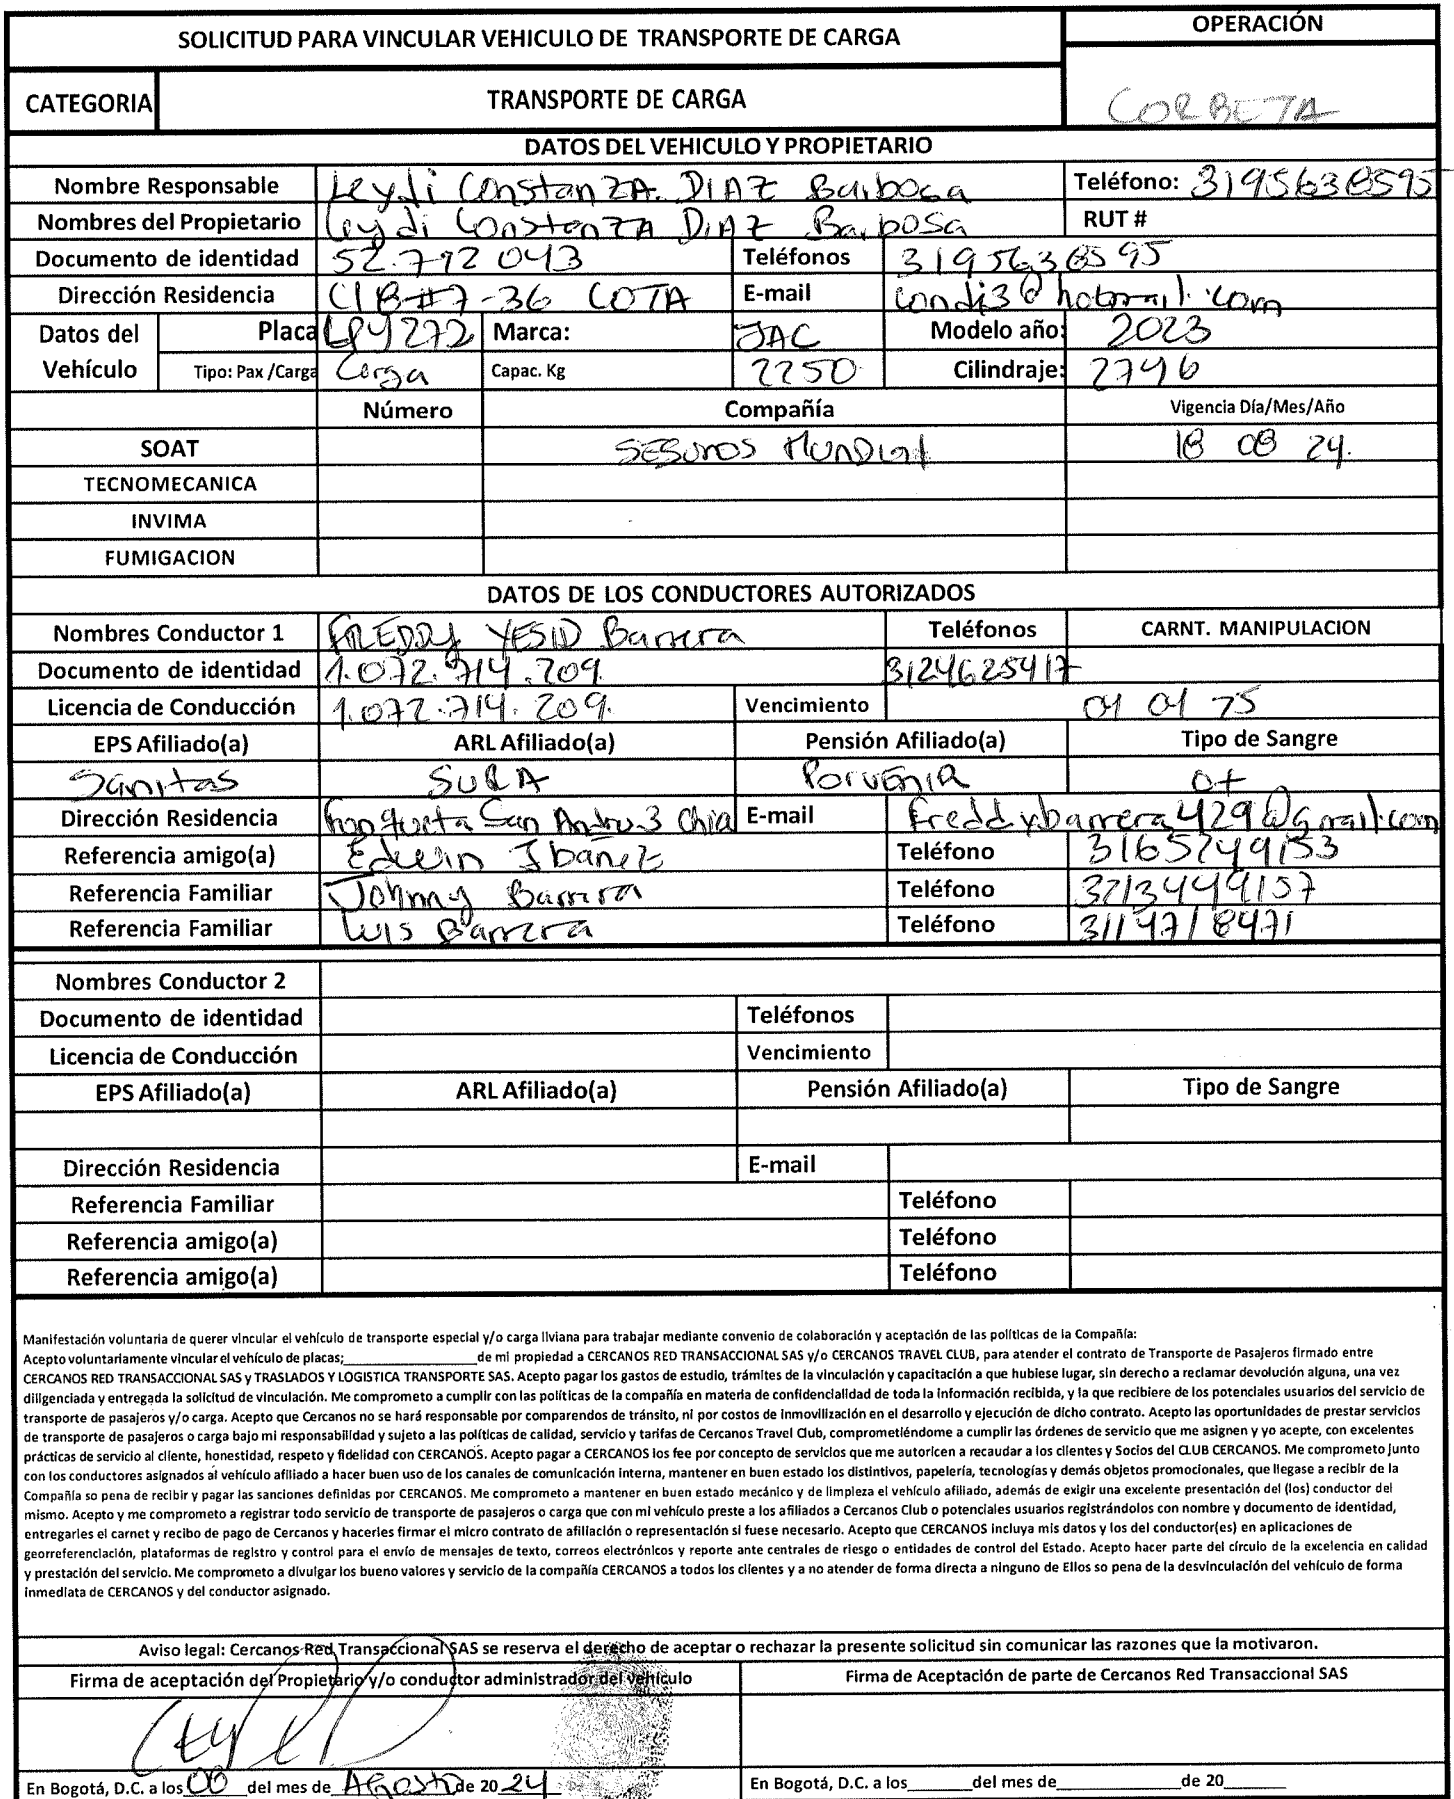 SOLICITUD PARA VINCULAR VEHICULO DE TRANSPORTE DE CARGA OPERACIÓN
CATEGORIA TRANSPORTE DE CARGA CORBETA
DATOS DEL VEHICULO Y PROPIETARIO
Nombre Responsable Leydi ConstanZA. DIAZ Barbosa Teléfono: 3195638595
Nombres del Propietario Leydi ConstanZA DIAZ Barbosa RUT #
Documento de identidad 52.792 043 Teléfonos 3195638595
Dirección Residencia Cl 8 #7-36 COTA E-mail condi3@hotmail.com
Datos del Vehículo Placa LPY272 Marca: JAC Modelo año: 2023
Tipo: Pax /Carga Carga Capac. Kg 2250 Cilindraje: 2746
Número Compañía Vigencia Día/Mes/Año
SOAT SEGUROS MUNDIAL 18 08 24.
TECNOMECANICA
INVIMA
FUMIGACION
DATOS DE LOS CONDUCTORES AUTORIZADOS
Nombres Conductor 1 FREDDY YESID Barrera Teléfonos CARNT. MANIPULACION
Documento de identidad 1.072.714.209. 3124625417
Licencia de Conducción 1.072.714.209. Vencimiento 01 01 25
EPS Afiliado(a) ARL Afiliado(a) Pensión Afiliado(a) Tipo de Sangre
Sanitas SURA PorvENIR O+
Dirección Residencia San Chia E-mail Freddybarrera429@gmail.com
Referencia amigo(a) Edwin Ibañez Teléfono 3165249153
Referencia Familiar Johnny Barrera Teléfono 3213449157
Referencia Familiar Luis Barrera Teléfono 3114718471
Nombres Conductor 2
Documento de identidad Teléfonos
Licencia de Conducción Vencimiento
EPS Afiliado(a) ARL Afiliado(a) Pensión Afiliado(a) Tipo de Sangre
Dirección Residencia E-mail
Referencia Familiar Teléfono
Referencia amigo(a) Teléfono
Referencia amigo(a) Teléfono
Manifestación voluntaria de querer vincular el vehículo de transporte especial y/o carga liviana para trabajar mediante convenio de colaboración y aceptación de las políticas de la Compañía:
Acepto voluntariamente vincular el vehículo de placas;____________________de mi propiedad a CERCANOS RED TRANSACCIONAL SAS y/o CERCANOS TRAVEL CLUB, para atender el contrato de Transporte de Pasajeros firmado entre
CERCANOS RED TRANSACCIONAL SAS y TRASLADOS Y LOGISTICA TRANSPORTE SAS. Acepto pagar los gastos de estudio, trámites de la vinculación y capacitación a que hubiese lugar, sin derecho a reclamar devolución alguna, una vez
diligenciada y entregada la solicitud de vinculación. Me comprometo a cumplir con las políticas de la compañía en materia de confidencialidad de toda la información recibida, y la que recibiere de los potenciales usuarios del servicio de
transporte de pasajeros y/o carga. Acepto que Cercanos no se hará responsable por comparendos de tránsito, ni por costos de inmovilización en el desarrollo y ejecución de dicho contrato. Acepto las oportunidades de prestar servicios
de transporte de pasajeros o carga bajo mi responsabilidad y sujeto a las políticas de calidad, servicio y tarifas de Cercanos Travel Club, comprometiéndome a cumplir las órdenes de servicio que me asignen y yo acepte, con excelentes
prácticas de servicio al cliente, honestidad, respeto y fidelidad con CERCANOS. Acepto pagar a CERCANOS los fee por concepto de servicios que me autoricen a recaudar a los clientes y Socios del CLUB CERCANOS. Me comprometo junto
con los conductores asignados al vehículo afiliado a hacer buen uso de los canales de comunicación interna, mantener en buen estado los distintivos, papelería, tecnologías y demás objetos promocionales, que llegase a recibir de la
Compañía so pena de recibir y pagar las sanciones definidas por CERCANOS. Me comprometo a mantener en buen estado mecánico y de limpieza el vehículo afiliado, además de exigir una excelente presentación del (los) conductor del
mismo. Acepto y me comprometo a registrar todo servicio de transporte de pasajeros o carga que con mi vehículo preste a los afiliados a Cercanos Club o potenciales usuarios registrándolos con nombre y documento de identidad,
entregarles el carnet y recibo de pago de Cercanos y hacerles firmar el micro contrato de afiliación o representación si fuese necesario. Acepto que CERCANOS incluya mis datos y los del conductor(es) en aplicaciones de
georreferenciación, plataformas de registro y control para el envío de mensajes de texto, correos electrónicos y reporte ante centrales de riesgo o entidades de control del Estado. Acepto hacer parte del círculo de la excelencia en calidad
y prestación del servicio. Me comprometo a divulgar los bueno valores y servicio de la compañía CERCANOS a todos los clientes y a no atender de forma directa a ninguno de Ellos so pena de la desvinculación del vehículo de forma
inmediata de CERCANOS y del conductor asignado.
Aviso legal: Cercanos Red Transaccional SAS se reserva el derecho de aceptar o rechazar la presente solicitud sin comunicar las razones que la motivaron.
Firma de aceptación del Propietario y/o conductor administrador del vehículo Firma de Aceptación de parte de Cercanos Red Transaccional SAS
En Bogotá, D.C. a los 08 del mes de Agosto de 20 24 En Bogotá, D.C. a los_______del mes de______________de 20_______